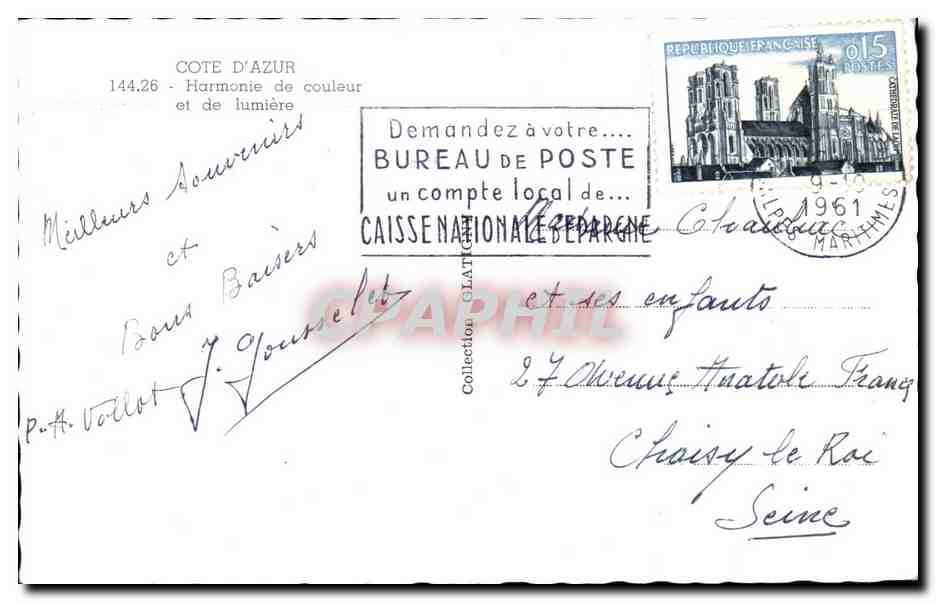 COTE D'AZUR
144.26 - Harmonie de couleur
et de lumière
Meilleurs Souvenirs
et
Bons Baisers
J. Gousselet
P.-H. Vollot
Demandez à votre....
BUREAU DE POSTE
un compte local de...
CAISSE NATIONALE D'EPARGNE
REPUBLIQUE FRANÇAISE
0,15
POSTES
CATHEDRALE DE
9-10
1961
ALPES MARITIMES
Collection GLATIGNY
CPAPHIL
Madame
et ses enfants
27 Avenue Anatole France
Choisy le Roi
Seine